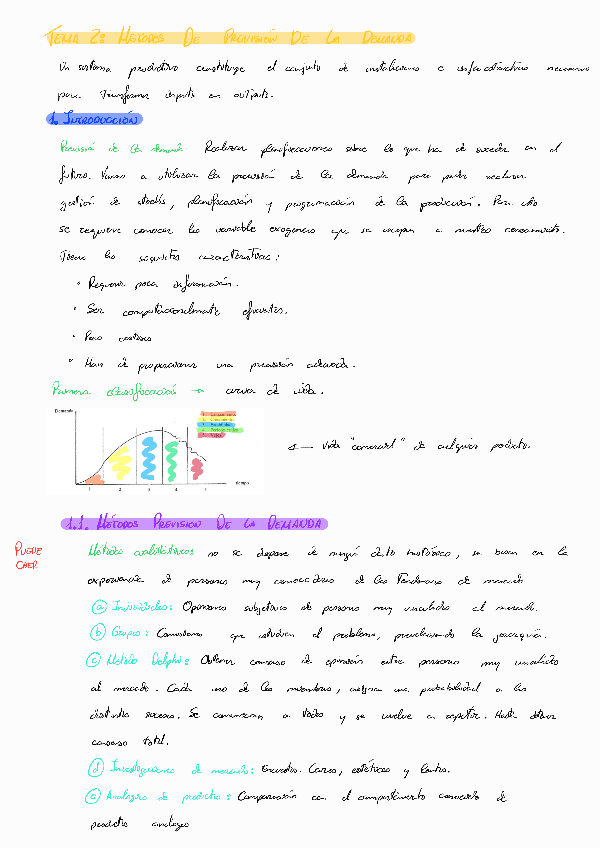 TEMA 2: MÉTODOS DE PREVISIÓN DE LA DEMANDA
Un sistema productivo constituye el conjunto de instalaciones e infraestructura necesarias
para transformar inputs en outputs.
1. INTRODUCCIÓN
Previsión de la demanda Realizar planificaciones sobre lo que ha de suceder en el
futuro. Vamos a utilizar la previsión de la demanda para poder realizar
gestión de stocks, planificación y programación de la producción. Para ello
se requiere conocer las variable exogenas que se escapan a nuestro conocimiento.
Tiene las siguientes características:
• Requerir poca información.
• Ser computacionalmente eficientes.
• Poco costosos
• Han de proporcionar una precisión adecuada.
Primera clasificación → curva de vida.
Demanda
tiempo
1 2 3 4 5
Vida "comercial" de cualquier producto.
1.1. MÉTODOS PREVISION DE LA DEMANDA
PUEDE
CAER
Métodos cualitativos: no se dispone de ningún dato histórico, se basan en la
experiencia de personas muy conocedoras de las tendencias de mercado
a) Individuales: Opiniones subjetivas de personas muy vinculadas al mercado.
b) Grupos: Comisiones que estudian el problema, prevaleciendo la jerarquía.
c) Método Delphi: Obtener consenso de opinión entre personas muy vinculada
al mercado. Cada uno de los miembros, asigna una probabilidad a los
distintos sucesos. Se comunican a todos y se vuelve a repetir. Hasta obtener
consenso total.
d) Investigaciones de mercado: Encuestas. Caros, estéticas y lentos.
e) Analogías de productos: Comparación con el comportamiento conocido de
productos analogos